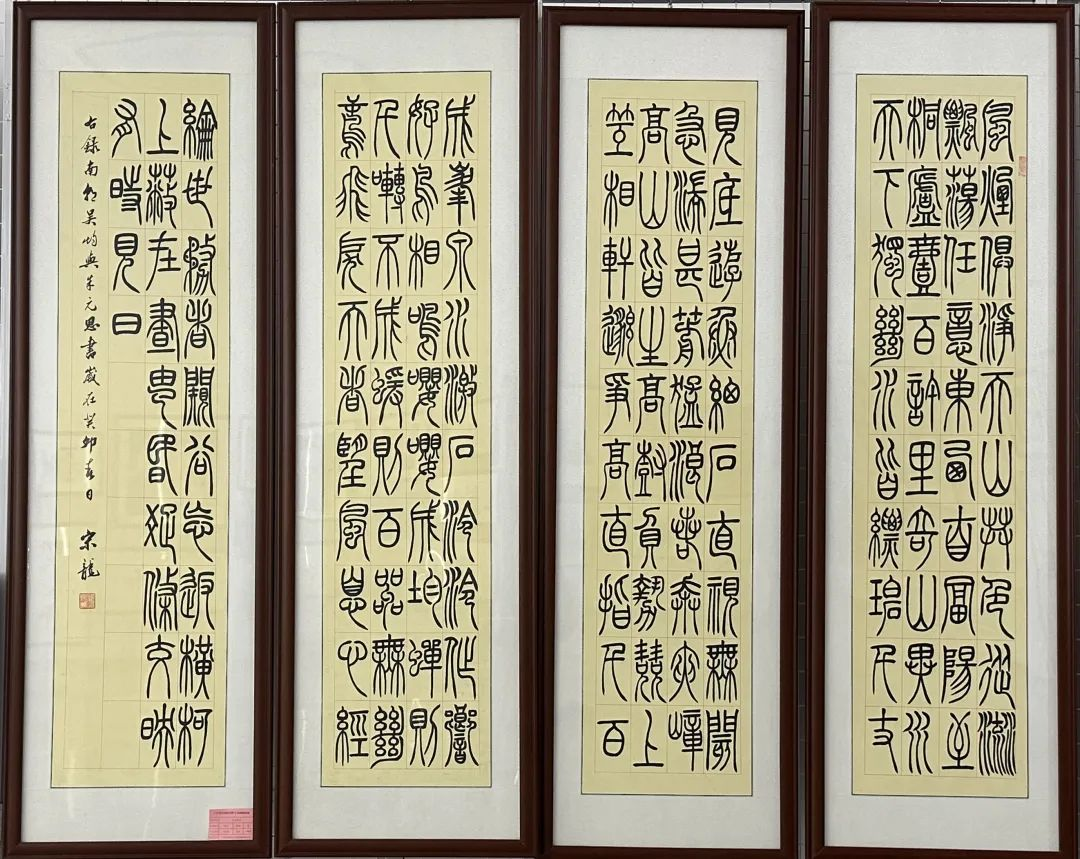 風煙俱淨天山共色從流
飄蕩任意東西自富陽至
桐廬壹百許里奇山異水
天下獨絕水皆縹碧千丈
見底遊魚細石直視無閡
急湍甚箭猛浪若奔夾嶂
高山皆生高樹負勢競上
笠相軒邈爭高直指千百
成峯泉水激石泠泠作響
好鳥相鳴嚶嚶成均蟬則
千囀不成猨則百㗊無絕
鳶飛戾天者望風息心經
綸世務者闚谷忘返橫柯
上蔽在晝昏疏條交映
有時見日
右錄南朝吳均與朱元思書歲在癸卯春日 宋龍